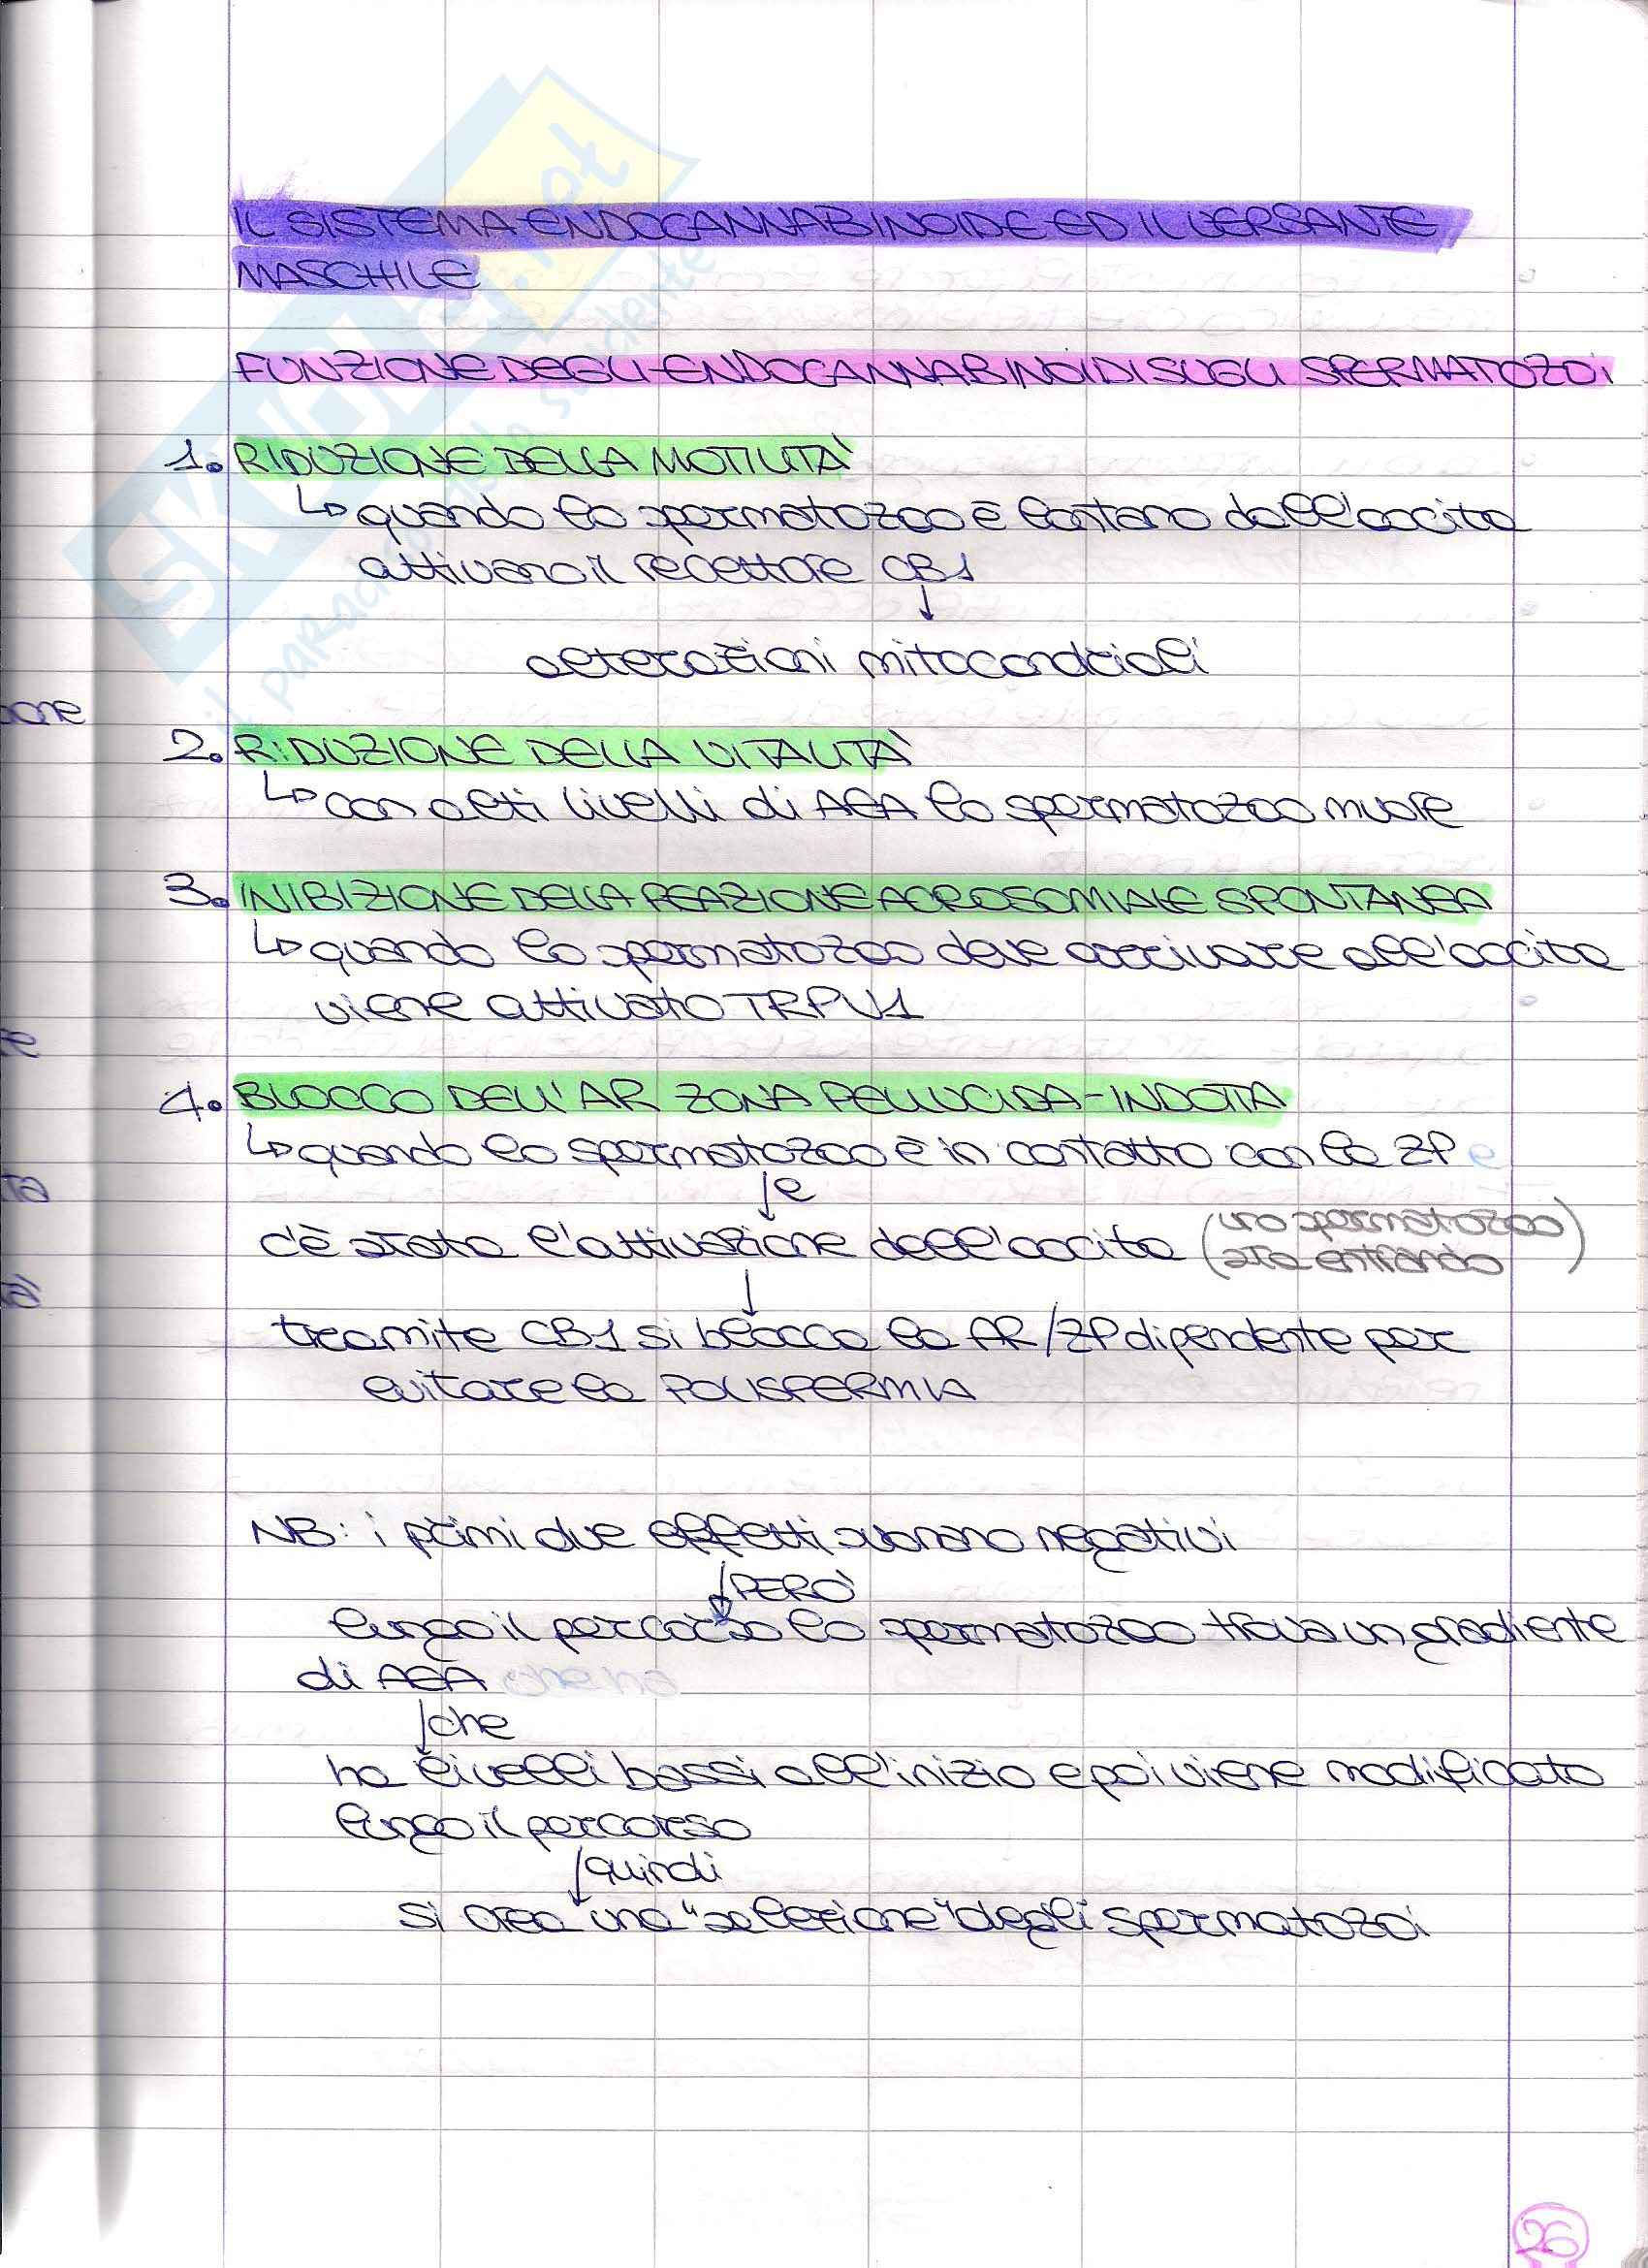 IL SISTEMA ENDOCANNABINOIDE ED IL VERSANTE
MASCHILE
FUNZIONE DEGLI ENDOCANNABINOIDI SUGLI SPERMATOZOI
1. RIDUZIONE DELLA MOTILITÀ
↳ quando lo spermatozoo è lontano dall'occita
attivano il recettore CB1
↓
alterazioni mitocondriali
2. RIDUZIONE DELLA VITALITÀ
↳ con alti livelli di AEA lo spermatozoo muore
3. INIBIZIONE DELLA REAZIONE ACROSOMIALE SPONTANEA
↳ quando lo spermatozoo deve arrivare all'occita
viene attivato TRPV1
4. BLOCCO DELL'AR ZONA PELLUCIDA-INDOTTA
↳ quando lo spermatozoo è in contatto con la ZP e
↓ e
c'è stata l'attivazione dell'occita (uno spermatozoo
sta entrando)
↓
tramite CB1 si blocca la AR/ZP dipendente per
evitare la POLISPERMIA
NB: i primi due effetti suonano negativi
↓ PERÒ
lungo il percorso lo spermatozoo trova un gradiente
di AEA che ha
↓ che
ha livelli bassi all'inizio e poi viene modificato
lungo il percorso
↓ quindi
si crea una "selezione" degli spermatozoi
26
SKUOLA.net
il paradiso dello studente
one